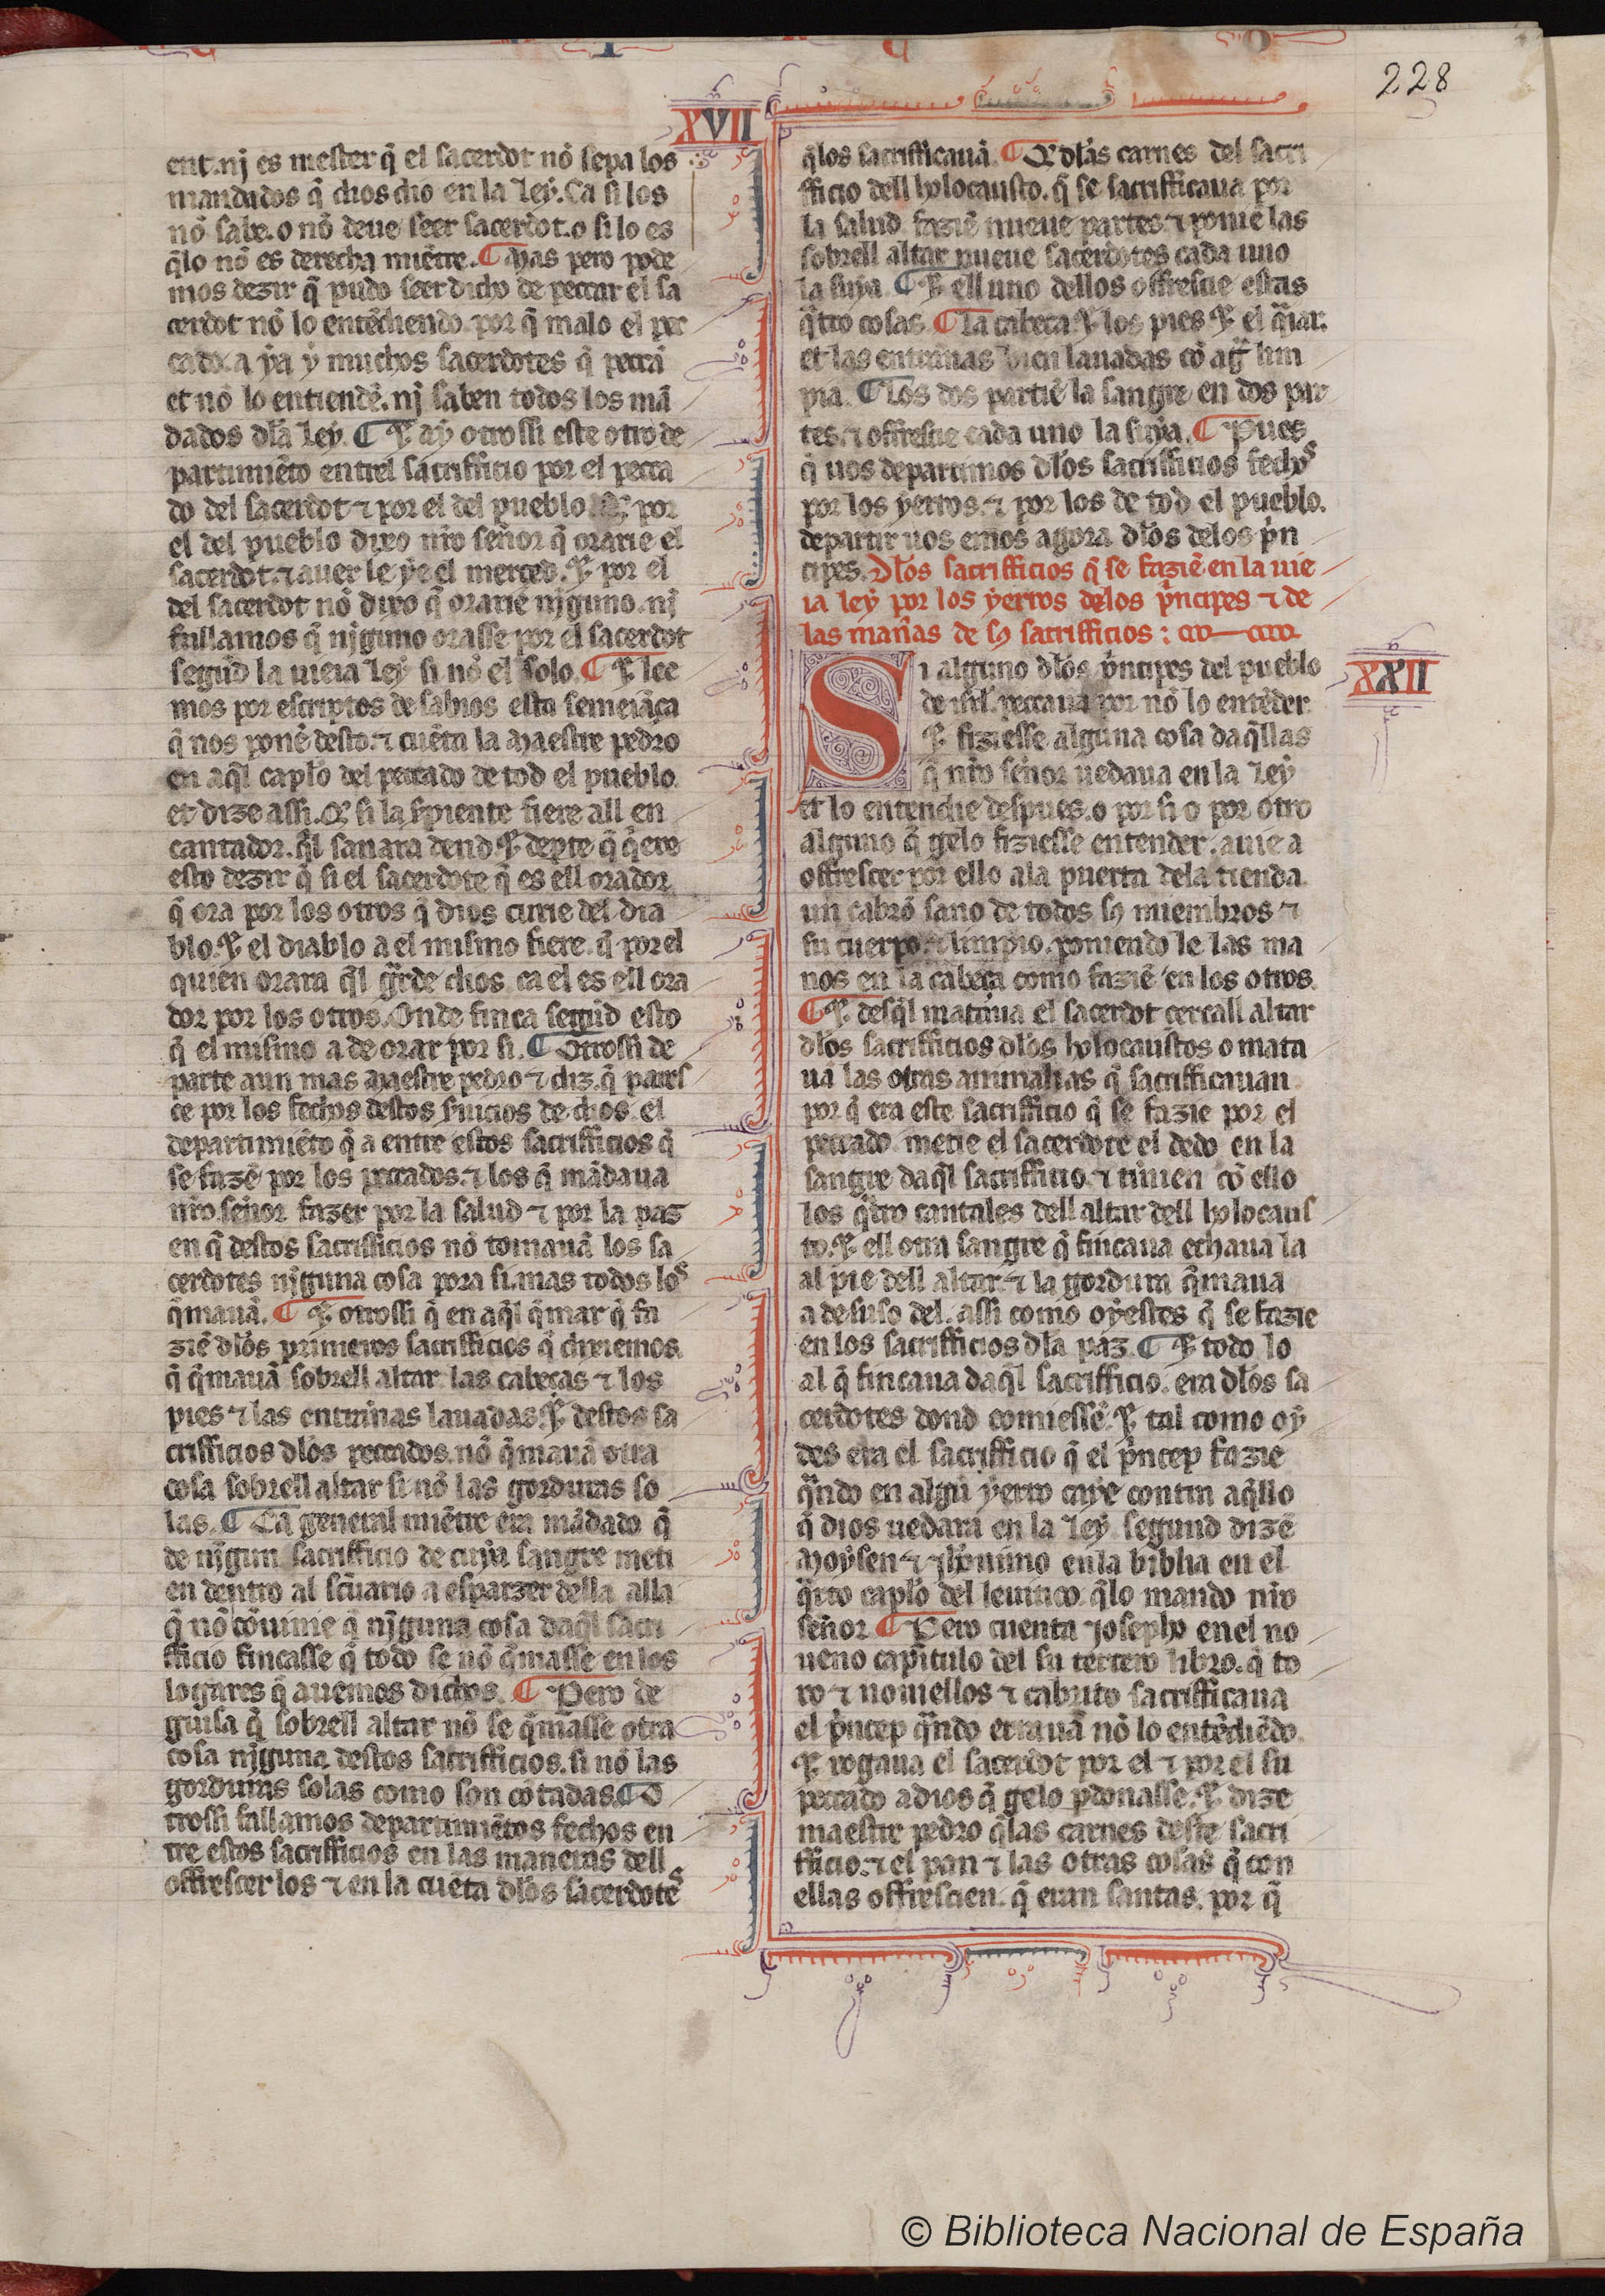 228
XVII
ent. nj es mester q̃ el sacerdot nõ sepa los
mandados q̃ dios dio en la ley. Ca si los
nõ sabe. o nõ deue seer sacerdot. o si lo es
q̃lo nõ es derecha miẽtre. ¶ Mas pero pode
mos dezir q̃ pudo seer dicho de peccar el sa
cerdot nõ lo entẽdiendo. por q̃ malo el pec
cado. a ya ẏ muchos sacerdotes q̃ peccã
et nõ lo entiendẽ. nj saben todos los mã
dados dla ley. ¶ E aẏ otrossi este otro de
partimiẽto entrel sacrifficio por el pecca
do del sacerdot ⁊ por el del pueblo. Q̃ por
el del pueblo dixo nr̃o señor q̃ orarie el
sacerdot. ⁊ auer le ẏe el merced. E por el
del sacerdot nõ dixo q̃ orarie njguno. nj
fallamos q̃ njguno orasse por el sacerdot
segũd la uieia ley si nõ el solo. ¶ E lee
mos por escriptos de sabios esta semeiãça
q̃ nos ponẽ desto. ⁊ cuẽta la maestre pedro
en aq̃l cap̃lo del peccado de tod el pueblo.
et dize assi. Q̃ si la s̃piente fiere all en
cantador. q̃l sanara dend. E dep̃te q̃ q̃ero
esto dezir q̃ si el sacerdote q̃ es ell orador
q̃ ora por los otros q̃ dios curie del dia
blo. E el diablo a el mismo fiere. q̃ por el
quien orara q̃l gr̃de dios. ca el es ell ora
dor por los otros. Onde finca segũd esto
q̃ el mismo a de orar por si. ¶ Otrossi de
parte aun mas maestre pedro ⁊ diz. q̃ pares
ce por los fechos destos s̃uicios de dios. el
departimiẽto q̃ a entre estos sacrifficios q̃
se fazẽ por los peccados. ⁊ los q̃ mãdaua
nr̃o señor fazer por la salud ⁊ por la paz
en q̃ destos sacrifficios nõ tomauã los sa
cerdotes njguna cosa pora si. mas todos los
q̃mauã. ¶ E otrossi q̃ en aq̃l q̃mar q̃ fa
ziẽ dlos primeros sacrifficios q̃ dixiemos.
q̃ q̃mauã sobrell altar las cabeças ⁊ los
pies ⁊ las entrañas lauadas. E destos sa
crifficios dlos peccados. nõ q̃mauã otra
cosa sobrell altar si nõ las gorduras so
las. ¶ Ca general miẽtre era mãdado q̃
de nj̃gun sacrifficio de cuya sangre meti
en dentro al sc̃uario a esparzer della alla
q̃ nõ cõuinie q̃ njguna cosa daq̃l sacri
fficio fincasse q̃ todo se nõ q̃masse en los
logares q̃ auemos dichos. ¶ Pero de
guisa q̃ sobrell altar nõ se q̃masse otra
cosa njguna destos sacrifficios. si nõ las
gorduras solas como son cõtadas. ¶ O
trossi fallamos departimiẽtos fechos en
tre estos sacrifficios en las maneras dell
offrescer los ⁊ en la cuẽta dlos sacerdotes
q̃los sacrifficauã. ¶ Q̃ dlas carnes del sacri
fficio dell holocausto. q̃ se sacrifficaua por
la salud faziẽ nueue partes. ⁊ poniẽ las
sobrell altar nueue sacerdotes cada uno
la suya. ¶ E ell uno dellos offrescie estas
q̃tro cosas. ¶ La cabeça. E los pies. E el q̃iar.
et las entrañas bien lauadas cõ agũ lim
pia. ¶ Los dos partiẽ la sangre en dos par
tes. ⁊ offrescie cada uno la suya. ¶ Pues
q̃ uos departimos dlos sacrifficios fechos
por los yerros. ⁊ por los de tod el pueblo.
departir uos emos agora dlos delos p̃n
cipes. Dlos sacrifficios q̃ se faziẽ en la uie
ia ley por los yerros delos p̃ncipes ⁊ de
las mañas de sus sacrifficios :
XXII
Si alguno dlos p̃ncipes del pueblo
de isrl. peccaua por nõ lo entẽder
E fiziesse alguna cosa daq̃llas
q̃ nr̃o señor uedaua en la ley
et lo entendie despues. o por si o por otro
alguno q̃ gelo fiziesse entender. auie a
offrescer por ello ala puerta dela tienda
un cabrõ sano de todos sus miembros ⁊
su cuerpo. ⁊ limpio. poniendo le las ma
nos en la cabeça como faziẽ en los otros.
¶ E desq̃l mataua el sacerdot cercall altar
dlos sacrifficios dlos holocaustos o mata
ua las otras animalias q̃ sacrifficauan
por q̃ era este sacrifficio q̃ se fazie por el
peccado. metie el sacerdote el dedo en la
sangre daq̃l sacrifficio. ⁊ tiñien cõ ello
los q̃tro cantales dell altar dell holocaus
to. E ell otra sangre q̃ fincaua echaua la
al pie dell altar. ⁊ la gordura q̃maua
a desuso del. assi como oyestes q̃ se fazie
en los sacrifficios dla paz. ¶ E todo lo
al q̃ fincaua daq̃l sacrifficio. era dlos sa
cerdotes dond comiessẽ. E tal como oẏ
des era el sacrifficio q̃ el p̃ncep fazie
q̃ndo en algũ yerro caye contra aq̃llo
q̃ dios uedara en la ley segund dizẽ
Moysen ⁊ Jheronimo en la biblia en el
q̃rto cap̃lo del leuitico. q̃lo mando nr̃o
señor. ¶ Pero cuenta Josepho en el no
ueno capitulo del su tercero libro. q̃ to
ro ⁊ nouiellos ⁊ cabrito sacrifficaua
el p̃ncep q̃ndo errauã nõ lo entẽdiẽdo.
E rogaua el sacerdot por el ⁊ por el su
peccado a dios q̃ gelo p̃donasse. E dize
maestre pedro q̃las carnes deste sacri
fficio. ⁊ el pan ⁊ las otras cosas q̃ con
ellas offrescien. q̃ eran santas. por q̃
© Biblioteca Nacional de España